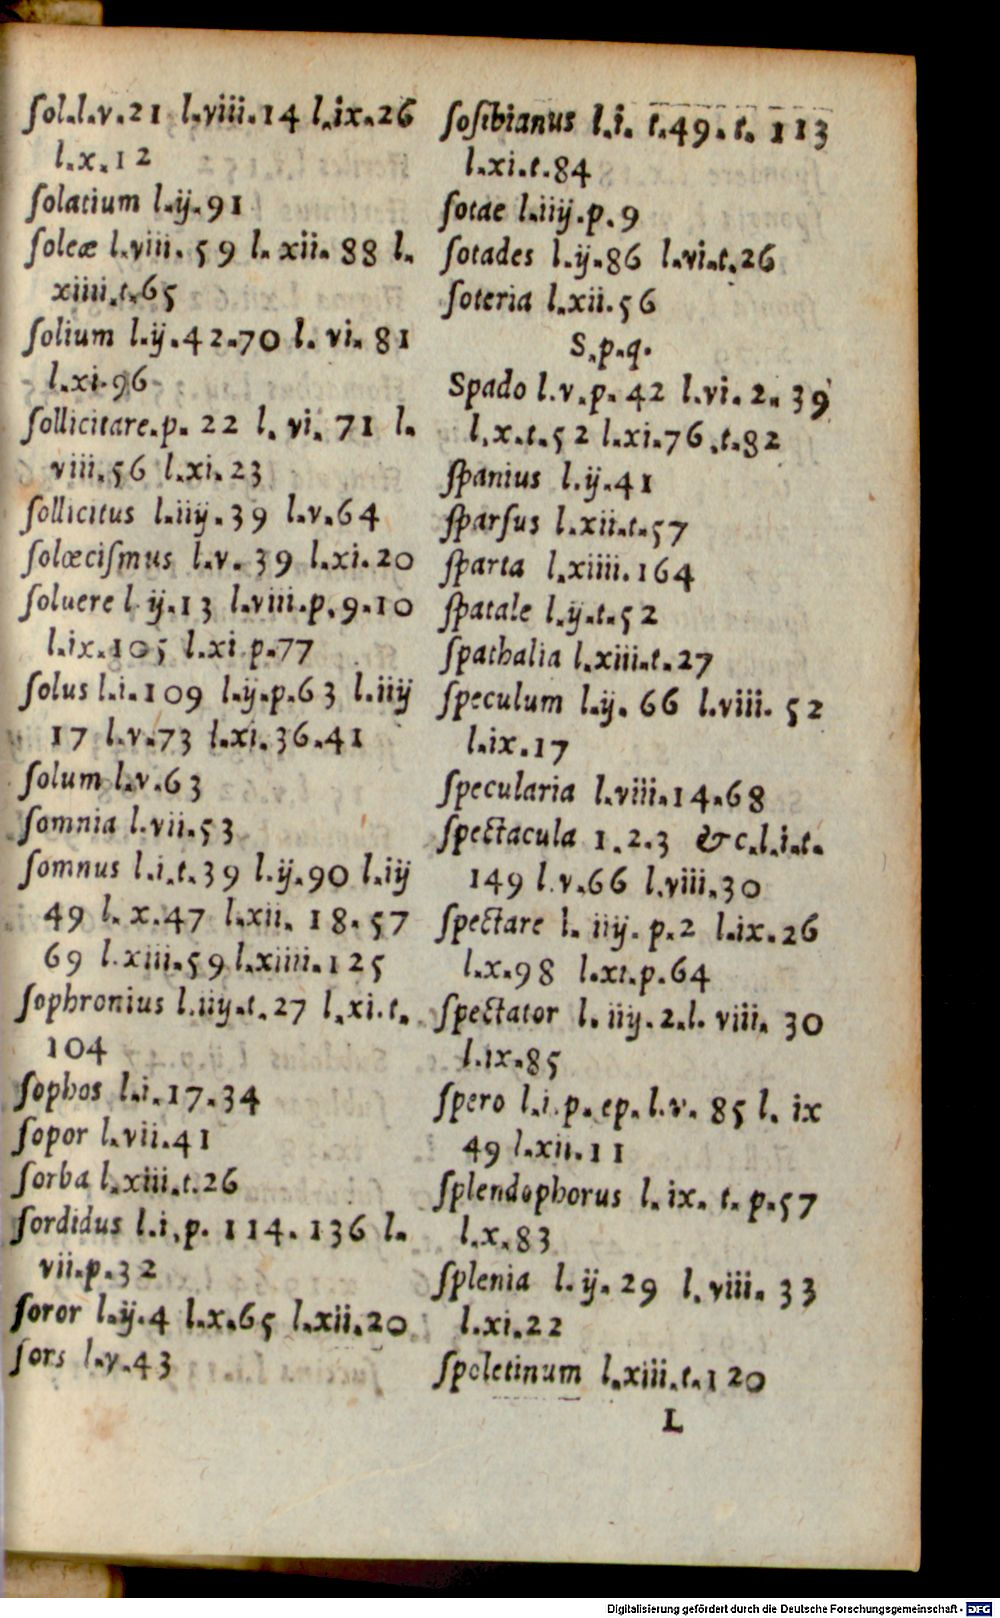 ſol.l.v.21 l.viii.14 l.ix.26
l.x.12
ſolatium l.ij.91
ſoleæ l.viii.59 l.xii.88 l.
xiiii.t.65
ſolium l.ij.42.70 l.vi.81
l.xi.96
ſollicitare.p.22 l.vi.71 l.
viii.56 l.xi.23
ſollicitus l.iiij.39 l.v.64
ſolœciſmus l.v.39 l.xi.20
ſoluere l.ij.13 l.viii.p.9.10
l.ix.105 l.xi p.77
ſolus l.i.109 l.ij.p.63 l.iiij
17 l.v.73 l.xi.36.41
ſolum l.v.63
ſomnia l.vii.53
ſomnus l.i.t.39 l.ij.90 l.iij
49 l.x.47 l.xii.18.57
69 l.xiii.59 l.xiiii.125
ſophronius l.iij.t.27 l.xi.t.
104
ſophos l.i.17.34
ſopor l.vii.41
ſorba l.xiii.t.26
ſordidus l.i.p.114.136 l.
vii.p.32
ſoror l.ij.4 l.x.65 l.xii.20
ſors l.v.43
ſoſibianus l.i.t.49.t.113
l.xi.t.84
ſotae l.iiij.p.9
ſotades l.ij.86 l.vi.t.26
ſoteria l.xii.56
S.p.q.
Spado l.v.p.42 l.vi.2.39
l.x.t.52 l.xi.76.t.82
ſpanius l.ij.41
ſparſus l.xii.t.57
ſparta l.xiiii.164
ſpatale l.ij.t.52
ſpathalia l.xiii.t.27
ſpeculum l.ij.66 l.viii.52
l.ix.17
ſpecularia l.viii.14.68
ſpectacula 1.2.3 &c.l.i.t.
149 l.v.66 l.viii.30
ſpectare l.iiij.p.2 l.ix.26
l.x.98 l.xi.p.64
ſpectator l.iiij.2.l.viii.30
l.ix.85
ſpero l.i.p.ep.l.v.85 l.ix
49 l.xii.11
ſplendophorus l.ix.t.p.57
l.x.83
ſplenia l.ij.29 l.viii.33
l.xi.22
ſpoletinum l.xiii.t.120
L
Digitalisierung gefördert durch die Deutsche Forschungsgemeinschaft - DFG